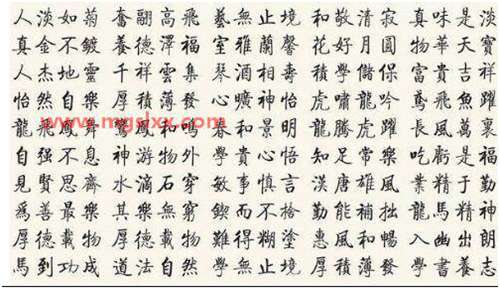 人淡如菊 奮翮高飛 藝無止境 和敬清寂 真味是淡
真金不鍍 養德澤福 室雅蘭馨 花好月圓 物華天寶
人杰地靈 千祥雲集 琴酒相壽 積學儲保 富貴吉祥
怡然自樂 厚積薄發 心曠神怡 虎嘯龍吟 鳶飛魚躍
龍飛鳳昇 鸞鳳和鳴 春和景明 龍騰虎躍 長風萬裏
自强不息 神游物外 學貴心悟 知足常樂 吃虧是福
見賢思齊 水滴石穿 敏事慎言 漢唐雄風 業精于勤
爲善最樂 其樂無窮 鍥而不捨 勤能補拙 龍馬精神
厚德載物 厚德載物 難得糊塗 惠風和暢 入幽出朗
馬到功成 道法自然 學無止境 厚積薄發 學書養志